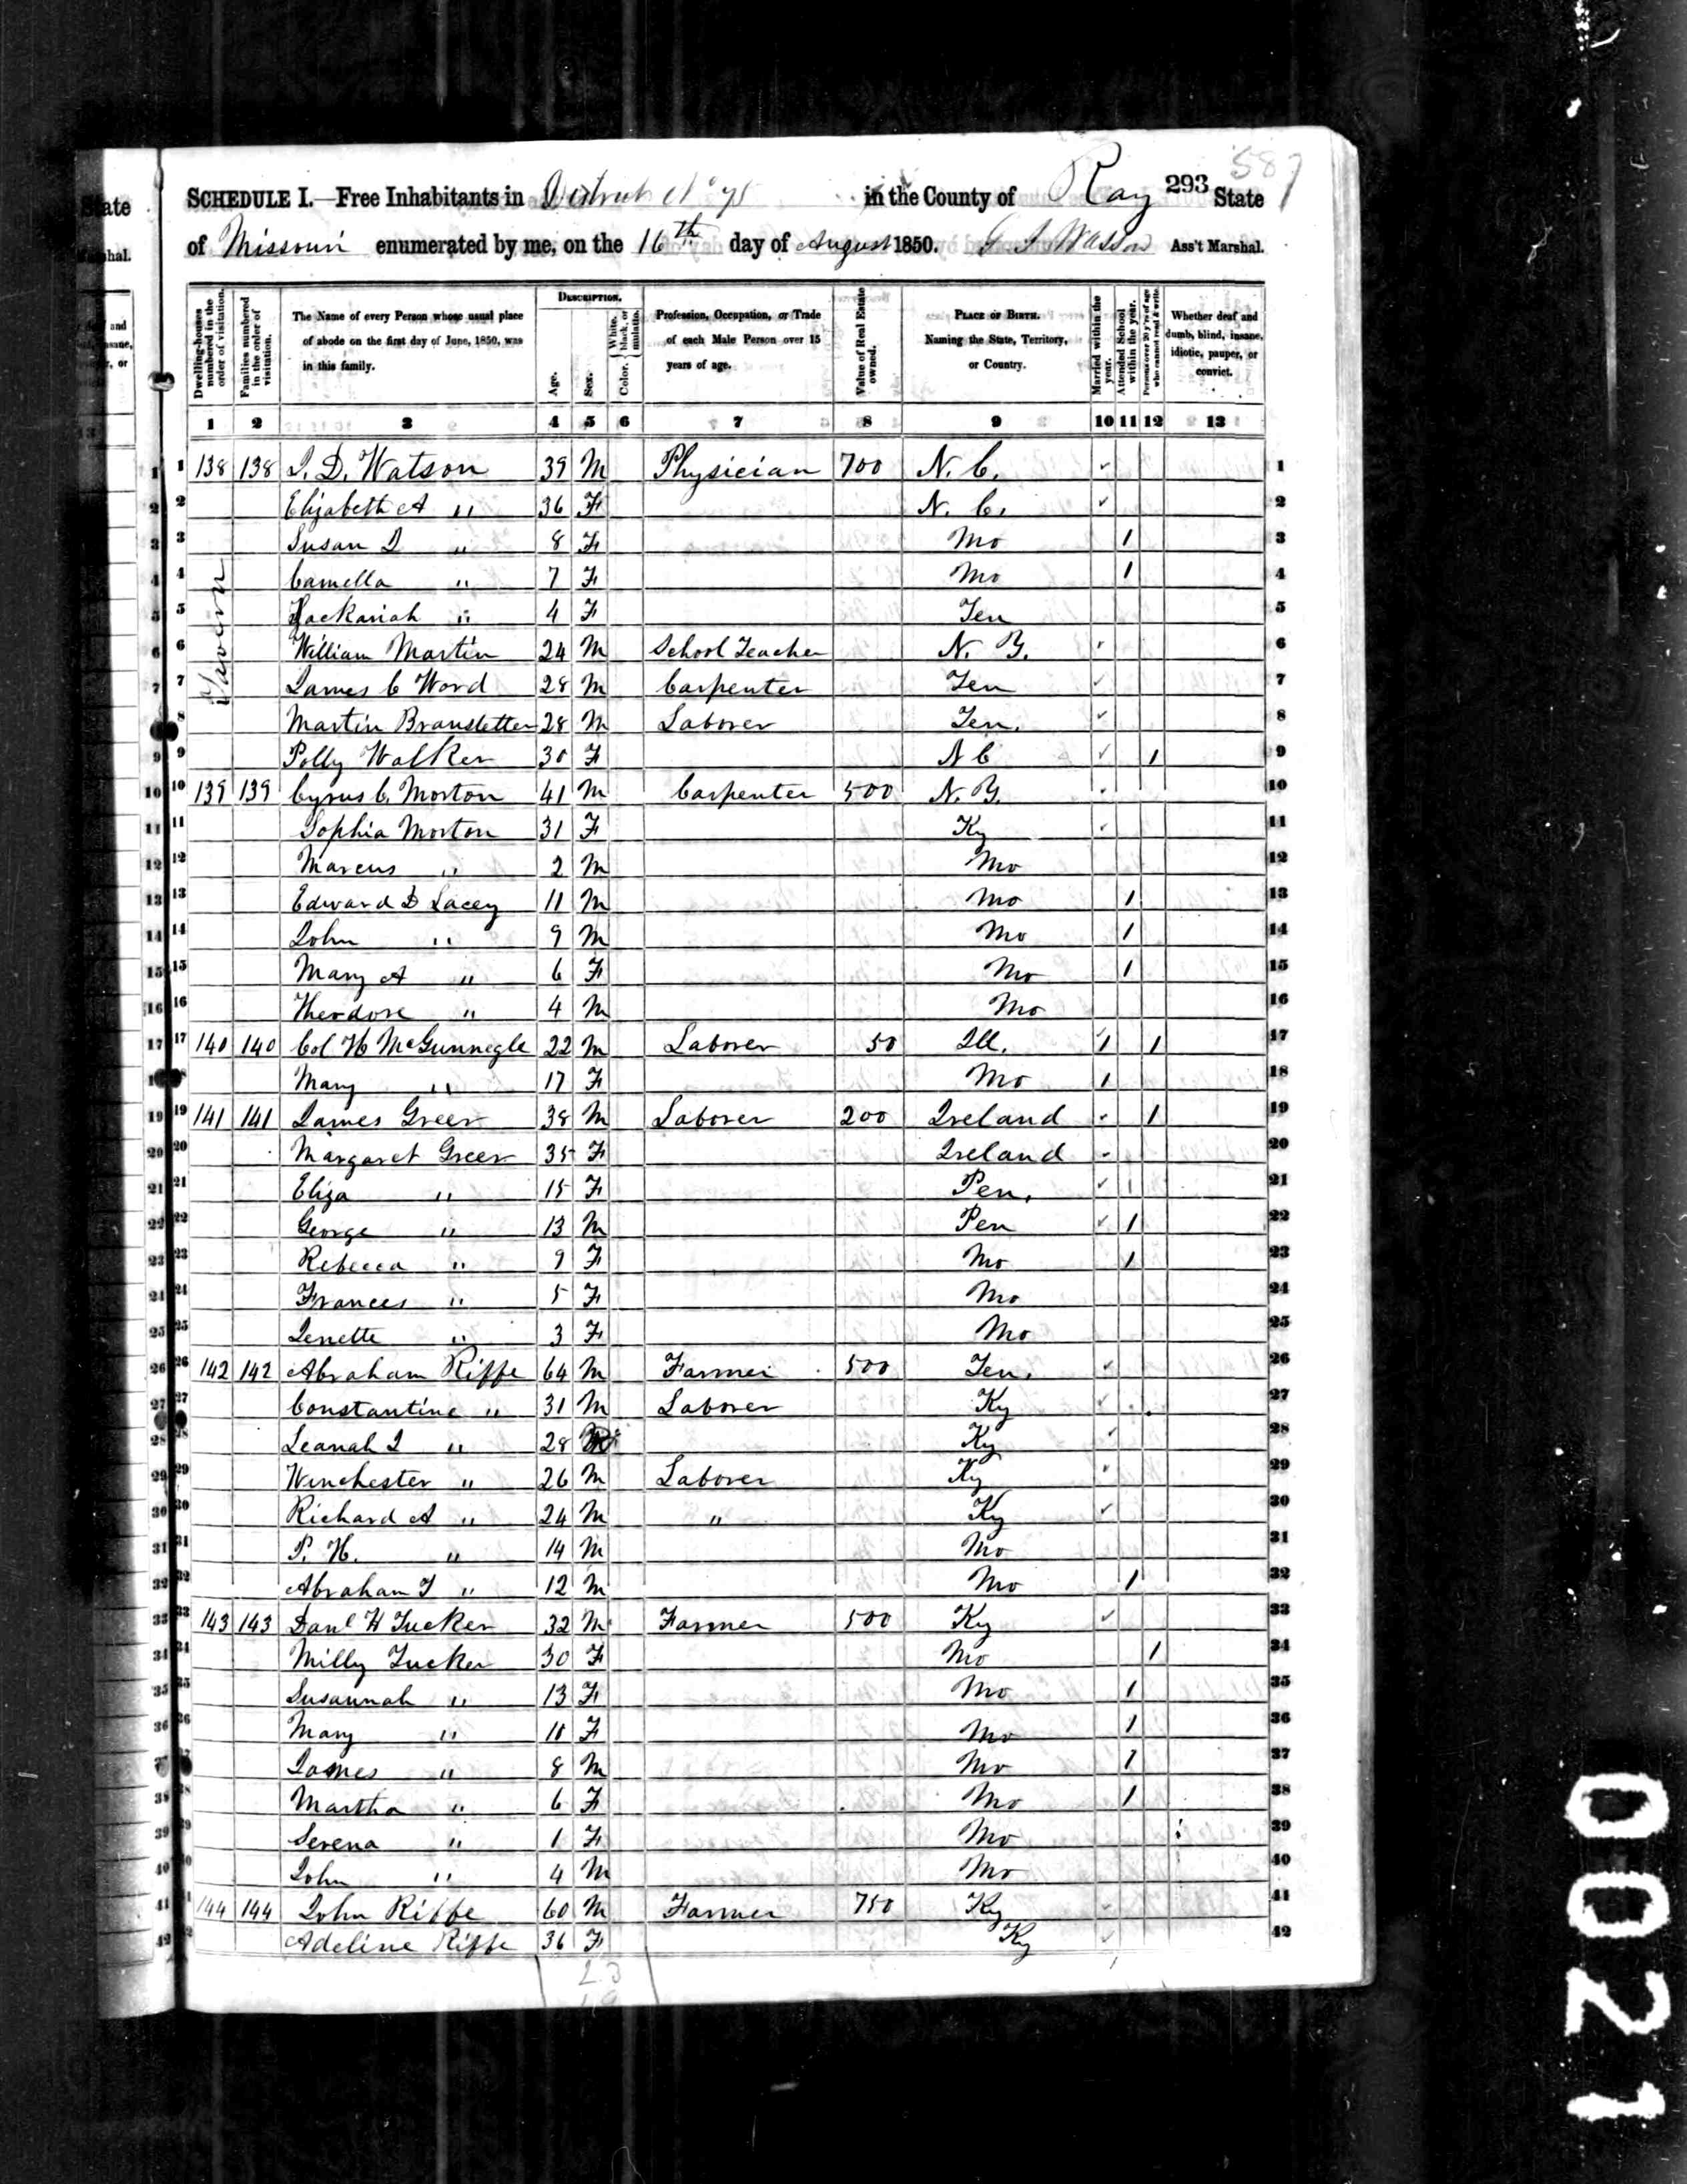 587
SCHEDULE I.—Free Inhabitants in District No 75 in the County of Ray 293 State
of Missouri enumerated by me, on the 16th day of August 1850. Ass't Marshal.
Dwelling-houses numbered in the order of visitation.
Families numbered in the order of visitation.
The Name of every Person whose usual place of abode on the first day of June, 1850, was in this family.
DESCRIPTION.
Age.
Sex.
Color. White, black, or mulatto.
Profession, Occupation, or Trade of each Male Person over 15 years of age.
Value of Real Estate owned.
PLACE OF BIRTH. Naming the State, Territory, or Country.
Married within the year.
Attended School within the year.
Persons over 20 y'rs of age who cannot read & write.
Whether deaf and dumb, blind, insane, idiotic, pauper, or convict.
1 2 3 4 5 6 7 8 9 10 11 12 13
1 138 138 J. D. Watson 39 M Physician 700 N. C. ✓ 1
2 Elizabeth A " 36 F N. C. ✓ 2
3 Susan D " 8 F Mo / 3
4 Camella " 7 F Mo / 4
5 Zackariah " 4 F Ten 5
6 William Martin 24 M School Teacher N. Y. ✓ 6
7 James C Word 28 M Carpenter Ten ✓ 7
8 Martin Branstetter 28 M Laborer Ten. ✓ 8
9 Polly Walker 30 F N C ✓ / 9
10 139 139 Cyrus C. Morton 41 M Carpenter 500 N. Y. 10
11 Sophia Morton 31 F Ky ✓ 11
12 Marcus " 2 M Mo 12
13 Edward D Lacey 11 M Mo / 13
14 John " 9 M Mo / 14
15 Mary A " 6 F Mo / 15
16 Theodore " 4 M Mo 16
17 140 140 Col H McGunnegle 22 M Laborer 50 Ill. / / 17
18 Mary " 17 F Mo / 18
19 141 141 James Greer 38 M Laborer 200 Ireland / 19
20 Margaret Greer 35 F Ireland 20
21 Eliza " 15 F Pen. ✓ / 21
22 George " 13 M Pen ✓ / 22
23 Rebecca " 9 F Mo / 23
24 Frances " 5 F Mo 24
25 Jenette " 3 F Mo 25
26 142 142 Abraham Riffe 64 M Farmer 500 Ten. ✓ 26
27 Constantine " 31 M Laborer Ky ✓ 27
28 Leanah J " 28 Ky ✓ 28
29 Winchester " 26 M Laborer Ky 29
30 Richard A " 24 M " Ky ✓ 30
31 P. H. " 14 M Mo 31
32 Abraham J " 12 M Mo / 32
33 143 143 Danl H Tucker 32 M Farmer 500 Ky ✓ 33
34 Milly Tucker 30 F Mo / 34
35 Susannah " 13 F Mo / 35
36 Mary " 10 F Mo / 36
37 James " 8 M Mo / 37
38 Martha " 6 F Mo / 38
39 Serena " 1 F Mo 39
40 John " 4 M Mo 40
41 144 144 John Riffe 60 M Farmer 750 Ky ✓ 41
42 Adeline Riffe 36 F Ky ✓ 42
23
19
0021